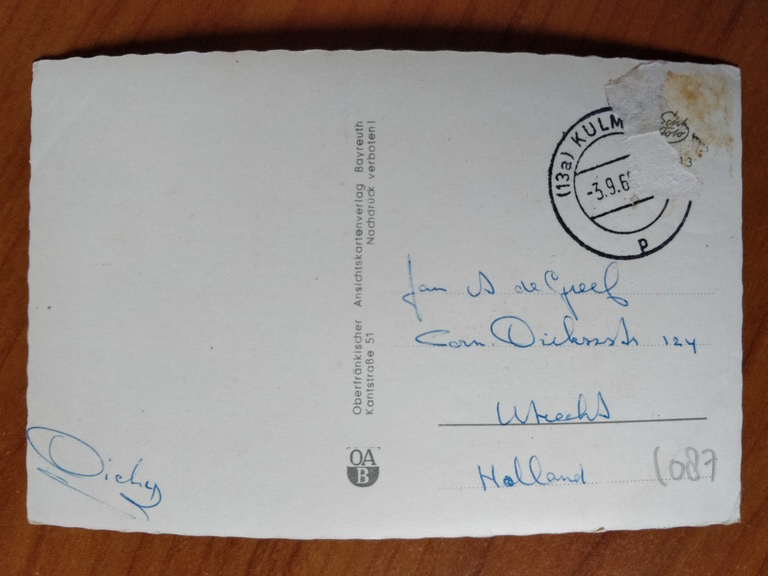 Dicky
Oberfränkischer Ansichtskartenverlag Bayreuth
Kantstraße 51 Nachdruck verboten!
OA
B
(13a) KULM
-3.9.6
P
Echt
Foto
Jan A de Greef
Corn. Dirkszstr 124
Utrecht
Holland
1087